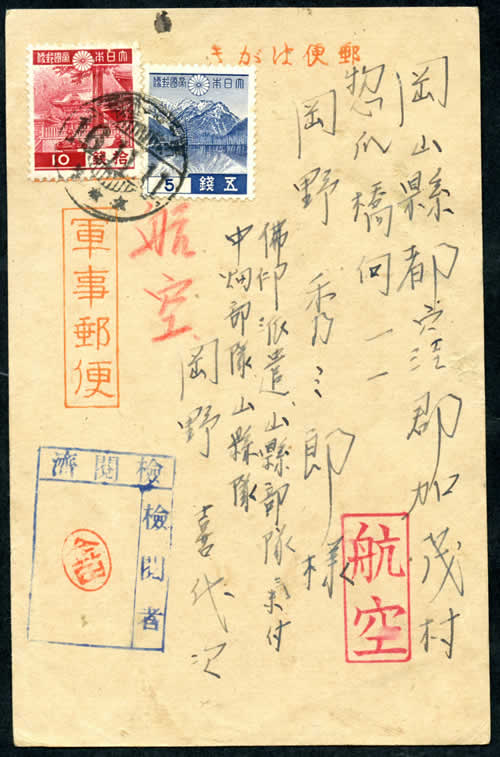 郵便はがき
大日本帝國郵便
10 拾銭
大日本帝國郵便
5 五錢
16
岡山縣都窪郡加茂村
惣爪橋向一一
岡野秀三郎様
佛印派遣、山縣部隊気付
中畑部隊山縣隊
岡野喜代次
航空
航空
軍事郵便
検閲濟
検閲者